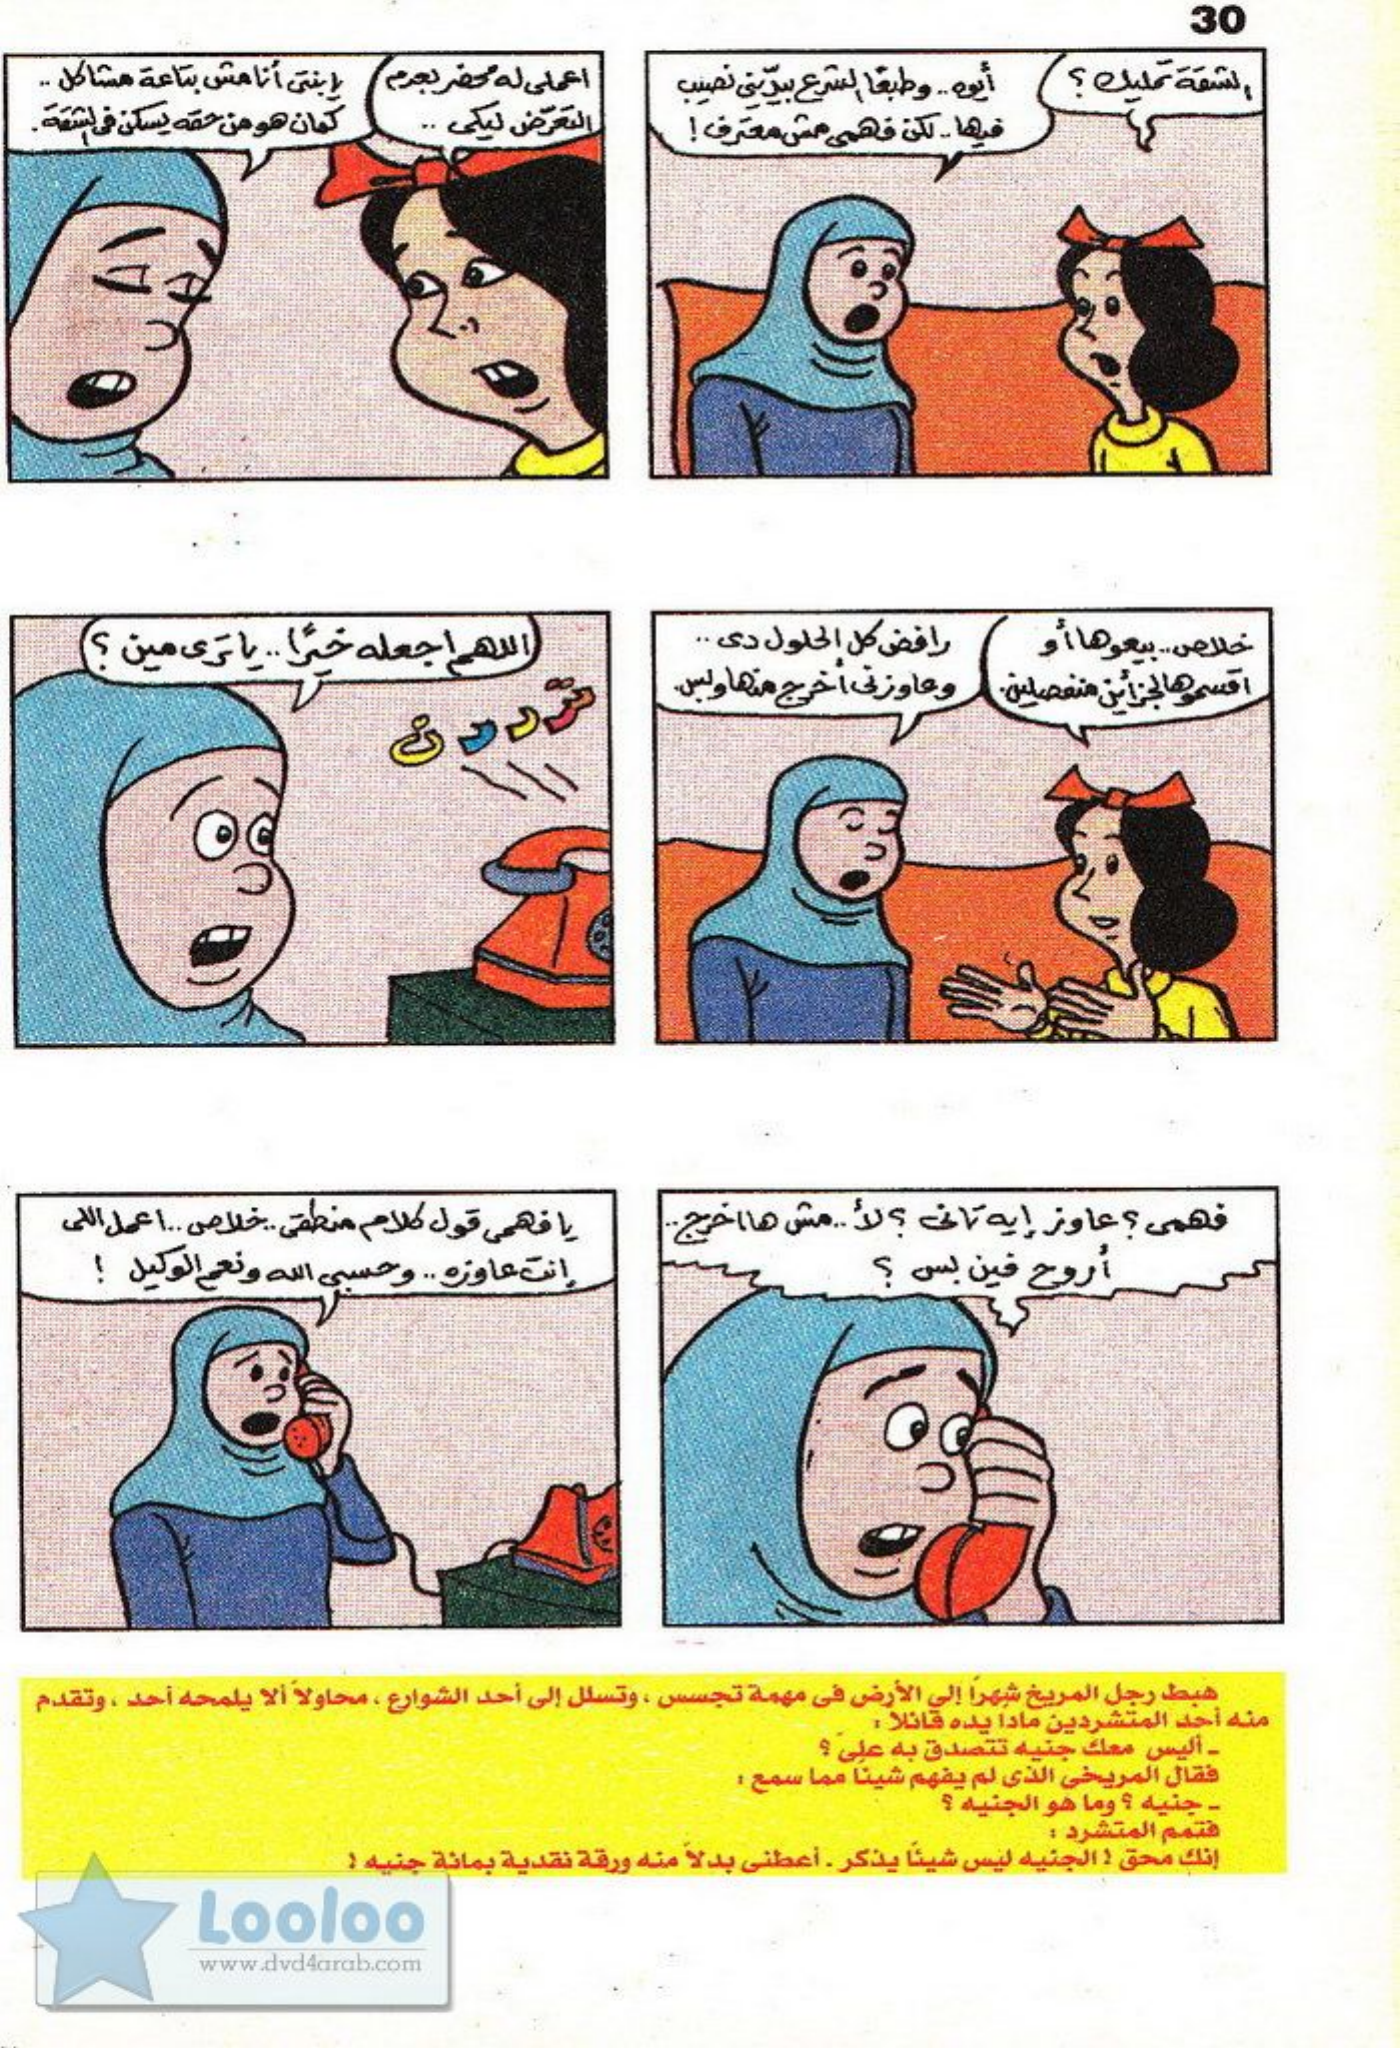 30
الشقة تمليك ؟
أيوه.. وطبعًا الشرع بيدّيني نصيب
فيها.. لكن فهمى مش معترف !
اعملى له محضر بعدم
التعرّض ليكى ..
يابنتى أنا مش بتاعة مشاكل ..
كمان هو من حقه يسكن فى الشقة.
خلاص.. بيعوها أو
اقسموها لجزأين منفصلين.
رافض كل الحلول دى ..
وعاوزنى أخرج منها وبس.
اللهم اجعله خيرًا .. يا ترى مين ؟
تررررن
فهمى ؟ عاوز إيه تانى ؟ لأ.. مش هاخرج..
أروح فين بس ؟
يا فهمى قول كلام منطقى.. خلاص.. اعمل اللى
إنت عاوزه.. وحسبى الله ونعم الوكيل !
هبط رجل المريخ شهرًا إلى الأرض فى مهمة تجسس ، وتسلل إلى أحد الشوارع ، محاولاً ألا يلمحه أحد ، وتقدم
منه أحد المتشردين مادا يده قائلا :
ـ أليس معك جنيه تتصدق به علىّ ؟
فقال المريخى الذى لم يفهم شيئًا مما سمع :
ـ جنيه ؟ وما هو الجنيه ؟
فتمم المتشرد :
إنك محق ! الجنيه ليس شيئًا يذكر . أعطنى بدلاً منه ورقة نقدية بمائة جنيه !
Looloo
www.dvd4arab.com